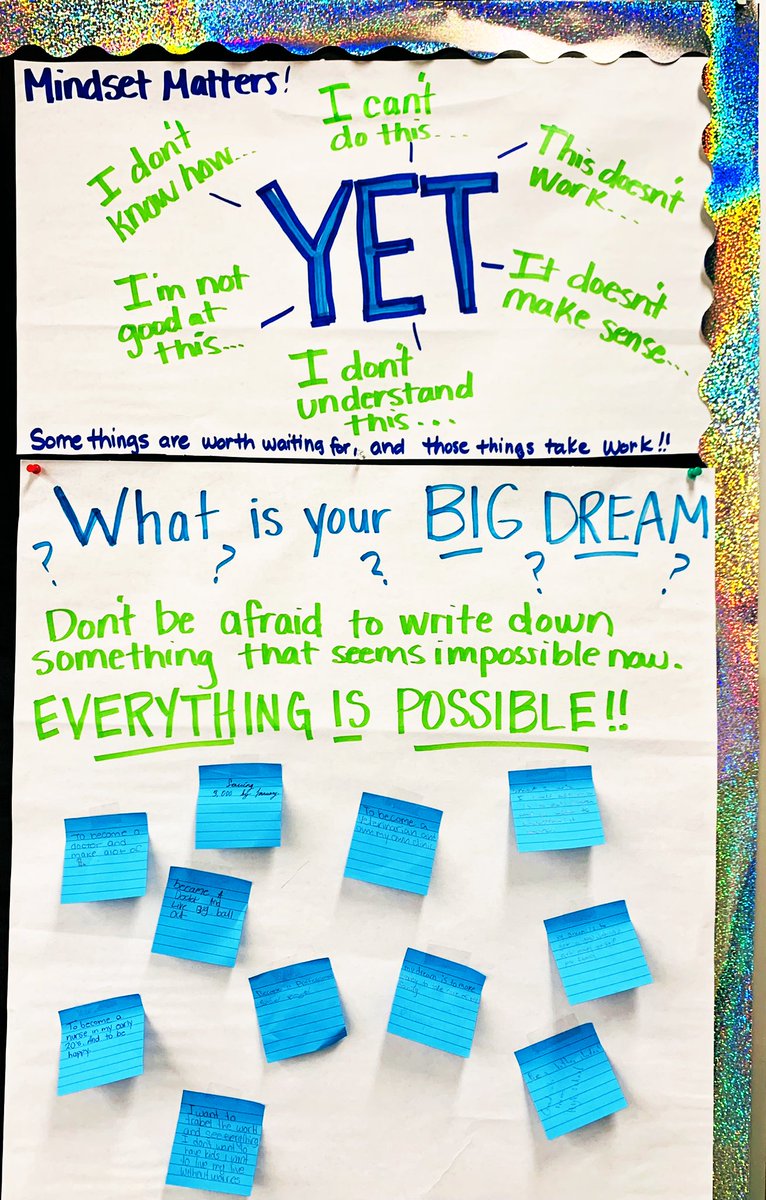 Mindset Matters!
I can't
do this....
I don't
know how...
This doesn't
work....
YET
I'm not
good at
this...
It doesn't
make sense...
I don't
understand
this...
Some things are worth waiting for, and those things take work!!
What is your BIG DREAM
? ? ? ? ?
Don't be afraid to write down
something that seems impossible now.
EVERYTHING IS POSSIBLE!!
To become a
doctor and
make alot of
Saving
by January.
To become a
veterinarian and
own my own clinic
Became A
Doctor And
Live
out
To become a
nurse in my early
20's. And to be
happy.
My dream is to
I want to
trabel the world
and see everything
I don't want to
have kids I want
to live my live
without worries